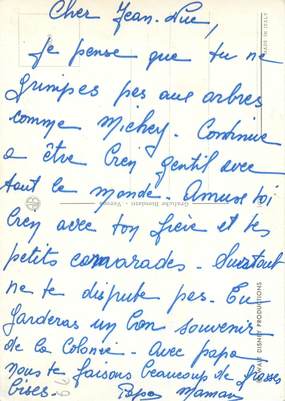 Cher Jean-Luc,
je pense que tu ne
grimpes pas aux arbres
comme Mickey - Continue
a être bien gentil avec
tout le monde - Amuse toi
bien avec ton frère et tes
petits camarades - Surtout
ne te dispute pas - Tu
garderas un bon souvenir
de la Colonie - Avec papa
nous te faisons beaucoup de grosses
bises - Papa Maman
WALT DISNEY PRODUCTIONS